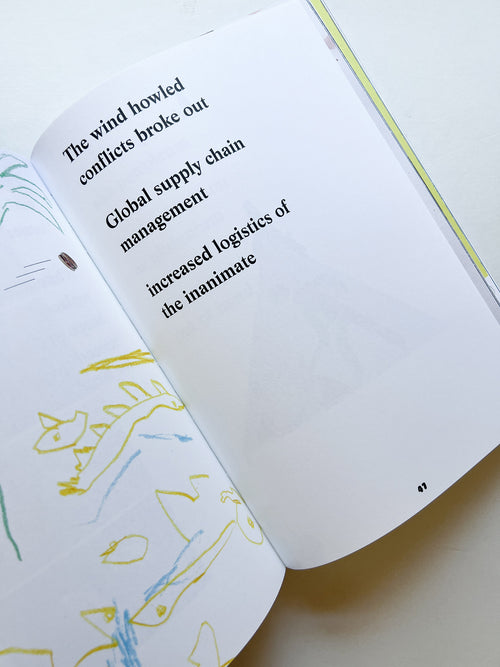 The wind howled
conflicts broke out
Global supply chain
management
increased logistics of
the inanimate
97